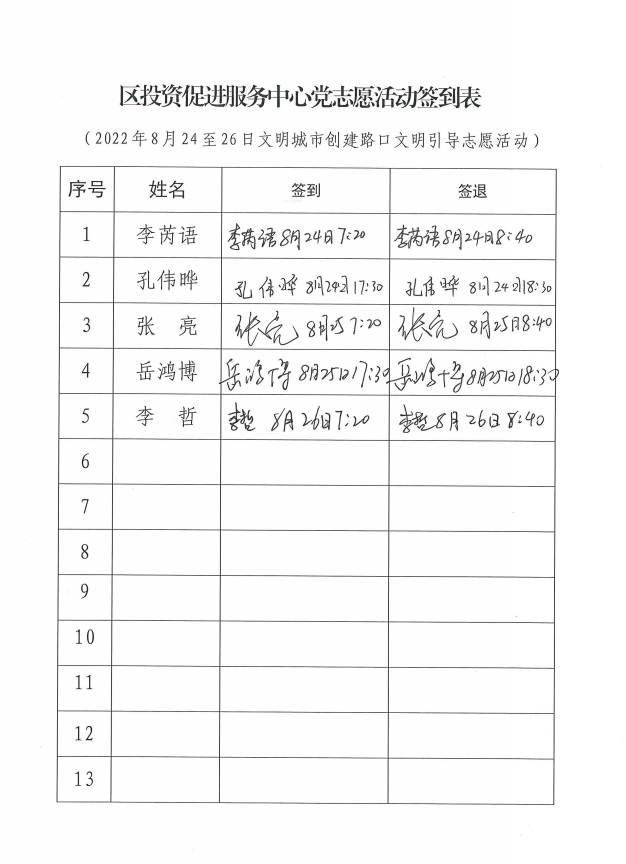 区投资促进服务中心党志愿活动签到表
（2022年8月24至26日文明城市创建路口文明引导志愿活动）
序号 姓名 签到 签退
1 李芮语 李芮语8月24日7:20 李芮语8月24日8:40
2 孔伟晔 孔伟晔 8月24日17:30 孔伟晔 8月24日18:30
3 张 亮 张亮 8月25 7:20 张亮 8月25日8:40
4 岳鸿博 岳鸿博 8月25日17:30 岳鸿博 8月25日18:30
5 李 哲 李哲 8月26日7:20 李哲 8月26日 8:40
6
7
8
9
10
11
12
13